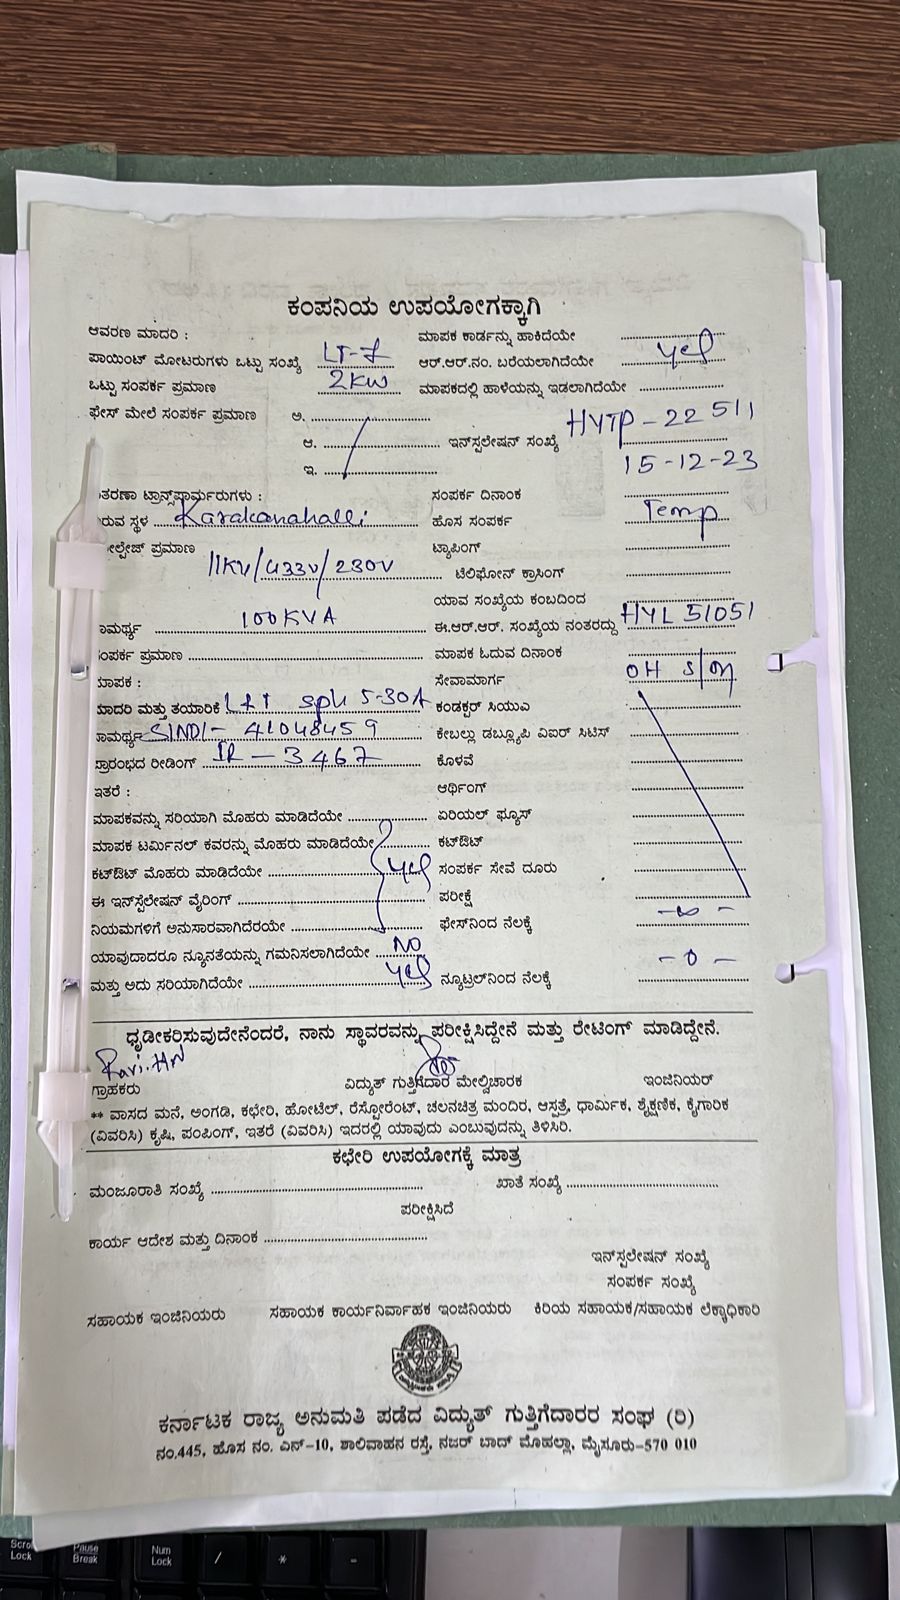 ಕಂಪನಿಯ ಉಪಯೋಗಕ್ಕಾಗಿ
ಆವರಣ ಮಾದರಿ : ಮಾಪಕ ಕಾರ್ಡನ್ನು ಹಾಕಿದೆಯೇ
ಪಾಯಿಂಟ್ ಮೋಟರುಗಳು ಒಟ್ಟು ಸಂಖ್ಯೆ LT-7 ಆರ್.ಆರ್.ನಂ. ಬರೆಯಲಾಗಿದೆಯೇ yes
ಒಟ್ಟು ಸಂಪರ್ಕ ಪ್ರಮಾಣ 2KW ಮಾಪಕದಲ್ಲಿ ಹಾಳೆಯನ್ನು ಇಡಲಾಗಿದೆಯೇ
ಫೇಸ್ ಮೇಲೆ ಸಂಪರ್ಕ ಪ್ರಮಾಣ ಅ.
ಆ. ಇನ್‌ಸ್ಪಲೇಷನ್ ಸಂಖ್ಯೆ HYTP-22511
ಇ. 15-12-23
ತರಣಾ ಟ್ರಾನ್ಸ್‌ಫಾರ್ಮರುಗಳು : ಸಂಪರ್ಕ ದಿನಾಂಕ
ರುವ ಸ್ಥಳ Karakanahalli ಹೊಸ ಸಂಪರ್ಕ Temp
ಲ್ಟೇಜ್ ಪ್ರಮಾಣ 11KV/433V/230V ಟ್ಯಾಪಿಂಗ್
ಟೆಲಿಫೋನ್ ಕ್ರಾಸಿಂಗ್
ಯಾವ ಸಂಖ್ಯೆಯ ಕಂಬದಿಂದ
ಾಮರ್ಥ್ಯ 100KVA ಈ.ಆರ್.ಆರ್. ಸಂಖ್ಯೆಯ ನಂತರದ್ದು HYL 51051
ಂಪರ್ಕ ಪ್ರಮಾಣ ಮಾಪಕ ಓದುವ ದಿನಾಂಕ
ಮಾಪಕ : ಸೇವಾಮಾರ್ಗ OH
ಮಾದರಿ ಮತ್ತು ತಯಾರಿಕೆ L&T sph 5-30A ಕಂಡಕ್ಟರ್ ಸಿಯುಎ
ಾಮರ್ಥ್ಯ SINDI- 41048459 ಕೇಬಲ್ಲು ಡಬ್ಲ್ಯೂಪಿ ವಿಐರ್ ಸಿಟಿಸ್
ಪ್ರಾರಂಭದ ರೀಡಿಂಗ್ IR-3467 ಕೊಳವೆ
ಇತರೆ : ಆರ್ಥಿಂಗ್
ಮಾಪಕವನ್ನು ಸರಿಯಾಗಿ ಮೊಹರು ಮಾಡಿದೆಯೇ ಏರಿಯಲ್ ಫ್ಯೂಸ್
ಮಾಪಕ ಟರ್ಮಿನಲ್ ಕವರನ್ನು ಮೊಹರು ಮಾಡಿದೆಯೇ ಕಟ್‌ಔಟ್
ಕಟ್‌ಔಟ್ ಮೊಹರು ಮಾಡಿದೆಯೇ yes ಸಂಪರ್ಕ ಸೇವೆ ದೂರು
ಈ ಇನ್‌ಸ್ಪಲೇಷನ್ ವೈರಿಂಗ್ ಪರೀಕ್ಷೆ
ನಿಯಮಗಳಿಗೆ ಅನುಸಾರವಾಗಿದೆರಯೇ ಫೇಸ್‌ನಿಂದ ನೆಲಕ್ಕೆ -∞-
ಯಾವುದಾದರೂ ನ್ಯೂನತೆಯನ್ನು ಗಮನಿಸಲಾಗಿದೆಯೇ NO
ಮತ್ತು ಅದು ಸರಿಯಾಗಿದೆಯೇ yes ನ್ಯೂಟ್ರಲ್‌ನಿಂದ ನೆಲಕ್ಕೆ -0-
ಧೃಡೀಕರಿಸುವುದೇನೆಂದರೆ, ನಾನು ಸ್ಥಾವರವನ್ನು ಪರೀಕ್ಷಿಸಿದ್ದೇನೆ ಮತ್ತು ರೇಟಿಂಗ್ ಮಾಡಿದ್ದೇನೆ.
Ravi.HN
ಗ್ರಾಹಕರು ವಿದ್ಯುತ್ ಗುತ್ತಿಗೆದಾರ ಮೇಲ್ವಿಚಾರಕ ಇಂಜಿನಿಯರ್
** ವಾಸದ ಮನೆ, ಅಂಗಡಿ, ಕಛೇರಿ, ಹೋಟೆಲ್, ರೆಸ್ಟೋರೆಂಟ್, ಚಲನಚಿತ್ರ ಮಂದಿರ, ಆಸ್ಪತ್ರೆ, ಧಾರ್ಮಿಕ, ಶೈಕ್ಷಣಿಕ, ಕೈಗಾರಿಕ
(ವಿವರಿಸಿ) ಕೃಷಿ, ಪಂಪಿಂಗ್, ಇತರೆ (ವಿವರಿಸಿ) ಇದರಲ್ಲಿ ಯಾವುದು ಎಂಬುವುದನ್ನು ತಿಳಿಸಿರಿ.
ಕಛೇರಿ ಉಪಯೋಗಕ್ಕೆ ಮಾತ್ರ
ಮಂಜೂರಾತಿ ಸಂಖ್ಯೆ ಖಾತೆ ಸಂಖ್ಯೆ
ಪರೀಕ್ಷಿಸಿದೆ
ಕಾರ್ಯ ಆದೇಶ ಮತ್ತು ದಿನಾಂಕ
ಇನ್‌ಸ್ಪಲೇಷನ್ ಸಂಖ್ಯೆ
ಸಂಪರ್ಕ ಸಂಖ್ಯೆ
ಸಹಾಯಕ ಇಂಜಿನಿಯರು ಸಹಾಯಕ ಕಾರ್ಯನಿರ್ವಾಹಕ ಇಂಜಿನಿಯರು ಕಿರಿಯ ಸಹಾಯಕ/ಸಹಾಯಕ ಲೆಕ್ಕಾಧಿಕಾರಿ
ಕರ್ನಾಟಕ ರಾಜ್ಯ ಅನುಮತಿ ಪಡೆದ ವಿದ್ಯುತ್ ಗುತ್ತಿಗೆದಾರರ ಸಂಘ (ರಿ)
ನಂ.445, ಹೊಸ ನಂ. ಎನ್-10, ಶಾಲಿವಾಹನ ರಸ್ತೆ, ನಜರ್ ಬಾದ್ ಮೊಹಲ್ಲಾ, ಮೈಸೂರು-570 010
Scro Lock Pause Break Num Lock / * -